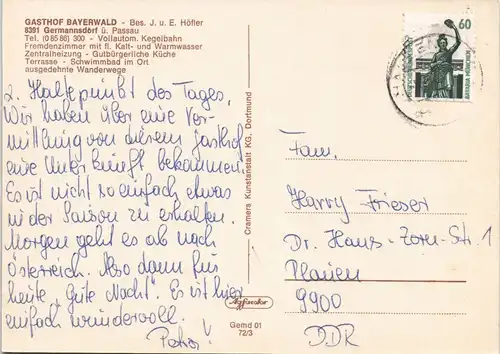 GASTHOF BAYERWALD - Bes. J. u. E. Höfler
8391 Germannsdorf ü. Passau
Tel. (0 85 86) 300 - Vollautom. Kegelbahn
Fremdenzimmer mit fl. Kalt- und Warmwasser
Zentralheizung - Gutbürgerliche Küche
Terrasse - Schwimmbad im Ort
ausgedehnte Wanderwege
2. Haltepunkt des Tages,
Wir haben über eine Ver-
mittlung von diesem Gasthof
eine Unterkunft bekommen.
Es ist nicht so einfach etwas
in der Saison zu erhalten.
Morgen geht es ab nach
Österreich. Also dann für
heute, "Gute Nacht". Es ist hier
einfach wundervoll.
Cramers Kunstanstalt KG, Dortmund
Agfacolor
Gemd 01
72/3
60
BAVARIA MÜNCHEN
Fam.
Harry Frieser
Dr. Hans-Zorn-Str. 1
Plauen
9900
DDR